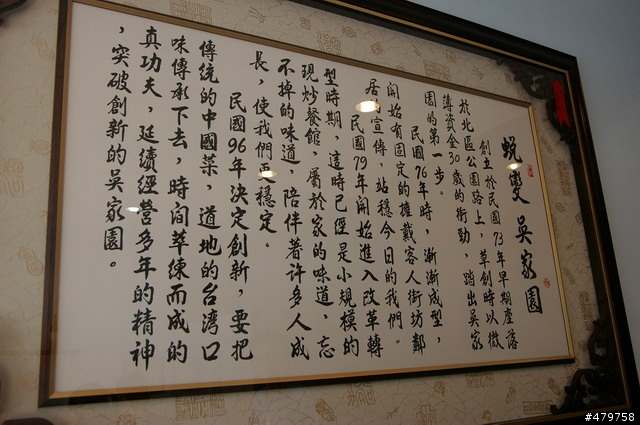 蛻變 吳家園
創立於民國73年早期座落
於北區公園路上,草創時以微
薄資金30歲的衝勁,踏出吳家
園的第一步。
民國76年時,漸漸成型,
開始有固定的擁戴客人街坊鄰
居宣傳,站穩今日的我們。
民國79年開始進入改革轉
型時期,這時已經是小規模的
現炒餐館,屬於家的味道,忘
不掉的味道,陪伴著許多人成
長,使我們更穩定。
民國96年決定創新,要把
傳統的中國菜,道地的台湾口
味傳承下去,時间萃練而成的
真功夫,延續經營多年的精神
,突破創新的吳家園。
#479758